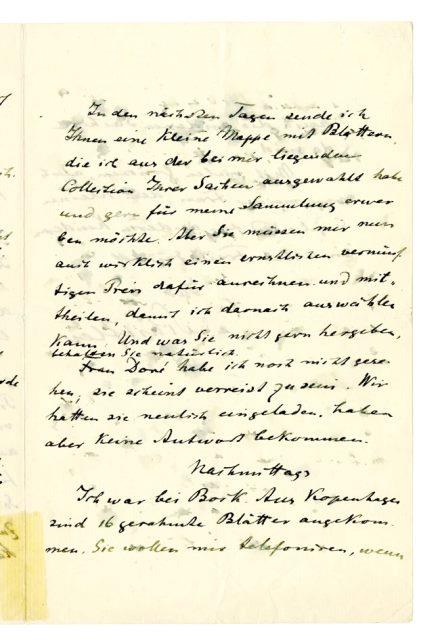 In den nächsten Tagen sende ich
Ihnen eine kleine Mappe mit Blättern
die ich aus der bei mir liegenden
Collection Ihrer Sachen ausgewählt habe
und gern für meine Sammlung erwer
ben möchte. Aber Sie müssen mir nun
auch wirklich einen ernstlichen vernünf
tigen Preis dafür anrechnen und mit-
theilen, damit ich darnach auswählen
kann. Und was Sie nicht gern hergeben,
behalten Sie natürlich.
Frau Doré habe ich noch nicht gese-
hen, sie scheint verreist zu sein. Wir
hatten sie neulich eingeladen, haben
aber keine Antwort bekommen.
Nachmittags
Ich war bei Bork. Aus Kopenhagen
sind 16 gerahmte Blätter angekom
men. Sie wollen mir telefoniren, wenn